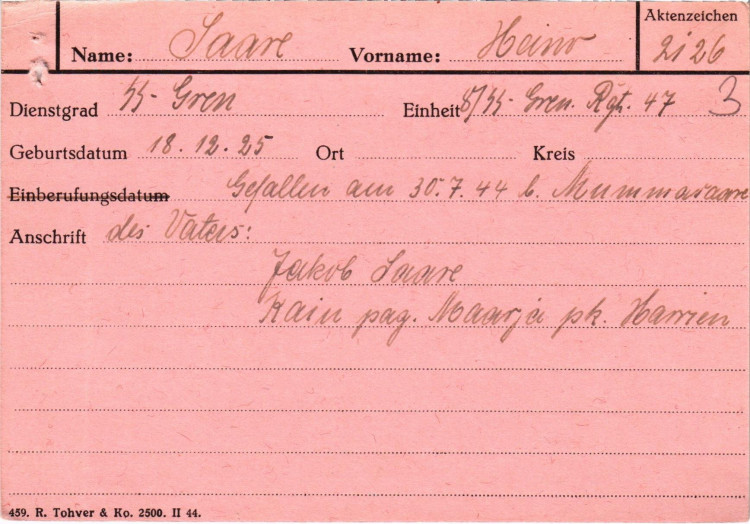 Aktenzeichen
Name: Saare Vorname: Heino 2i26
Dienstgrad SS-Gren Einheit 8/SS-Gren. Rgt. 47 3
Geburtsdatum 18.12.25 Ort Kreis
Einberufungsdatum Gefallen am 30.7.44 b. Mummasaare
Anschrift des Vaters:
Jakob Saare
Rain pag. Maarja pk. Harrien
459. R. Tohver & Ko. 2500. II 44.